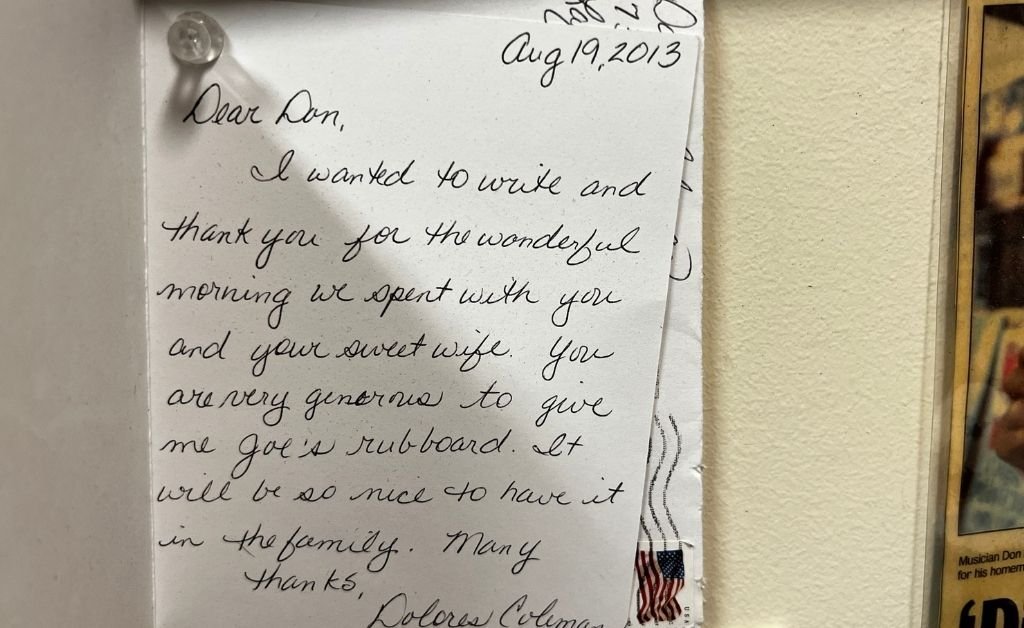 Aug 19, 2013
Dear Don,
I wanted to write and
thank you for the wonderful
morning we spent with you
and your sweet wife. You
are very generous to give
me Joe's rubboard. It
will be so nice to have it
in the family. Many
thanks,
Dolores Coleman
USA
Musician Don
for his homem
'D